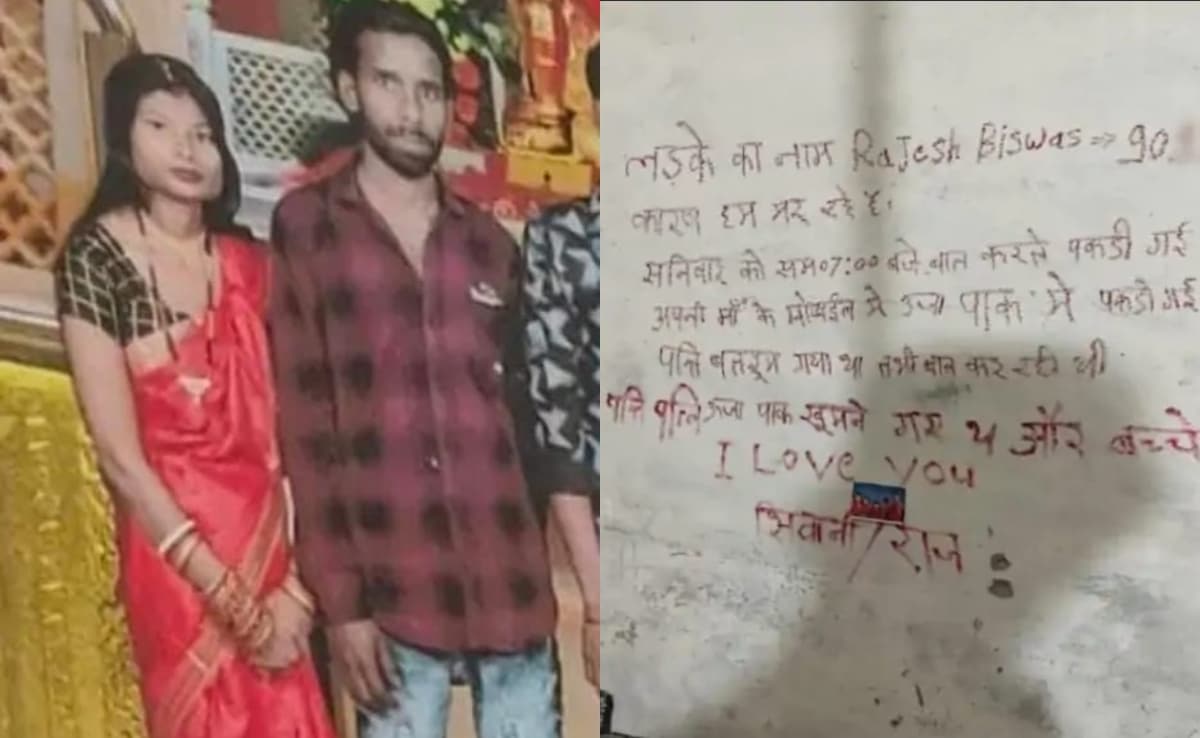 लड़के का नाम RaJesh Biswas => 90
कारण हम मर रहे है.
सनिवार को सम07:00 बजे बात करते पकडी गई
अपनी माँ के मोबाईल मे उजा पाक मे पकडी गई
पत्ति बतरूम गया था तभी बात कर रही थी
पत्ति पत्नि उजा पाक घूमने गए थ और बच्चे
I LOVe YOU
शिवानी/राज